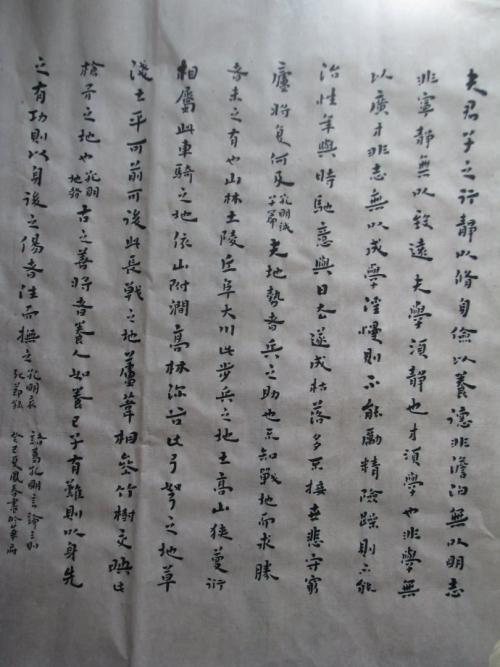 夫君子之行静以脩身儉以養德非澹泊無以明志
非寧静無以致遠夫學須静也才須學也非學無
以廣才非志無以成學淫慢則不能勵精險躁則不能
治性年與時馳意與日去遂成枯落多不接世悲守窮
廬將復何及孔明誡子篇夫地勢者兵之助也不知戰地而求勝
者未之有也山林土陵丘阜大川此步兵之地土高山狹蔓衍
相屬此車騎之地依山附澗高林深谷此弓弩之地草
淺土平可前可後此長戰之地蘆葦相參竹樹交映此
槍矛之地也孔明地勢古之善將者養人如養己子有難則以身先
之有功則以身後之傷者泣而撫之孔明哀死節錄
諸葛孔明言論三則
癸巳夏鳳春書於